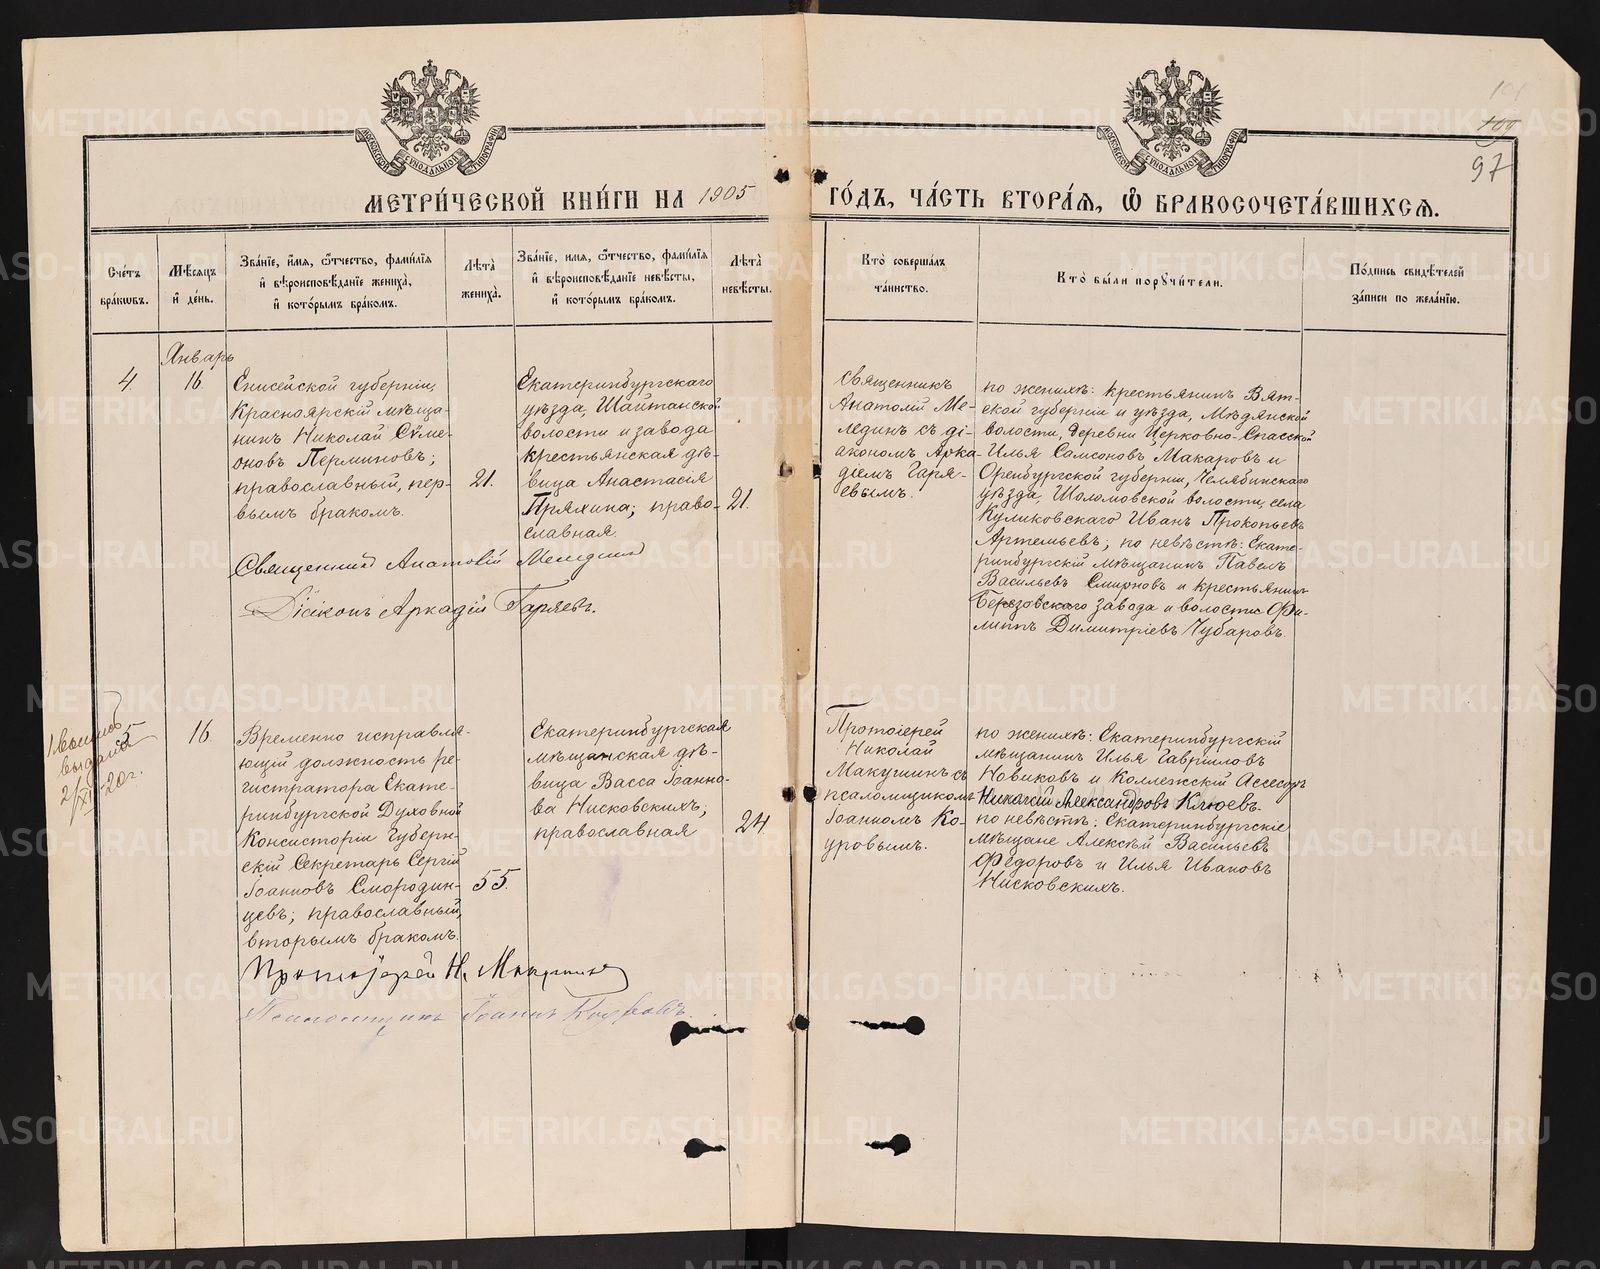 101
109
97
МОСКОВСКОЙ СУНОДАЛЬНОЙ ТИПОГРАФІИ
МОСКОВСКОЙ СУНОДАЛЬНОЙ ТИПОГРАФІИ
МЕТРИ́ЧЕСКОЙ КНИ́ГИ НА 1905 ГО́ДЪ, ЧА́СТЬ ВТОРА́Я, Ѽ БРАКОСОЧЕТА́ВШИХСЯ.
Сче́тъ
бра́кѡвъ.
Мѣ́сяцъ
и҆ де́нь.
Зва́нїе, и҆́мя, ѻ҆́тчество, фамѝлїя
и҆ вѣроисповѣ́данїе жениха̀,
и҆ кото́рымъ бра́комъ.
Лѣ́та̀
жениха̀.
Зва́нїе, имя, ѻ҆́тчество, фамѝлїя
и҆ вѣроисповѣ́данїе невѣ́сты,
и҆ кото́рымъ бра́комъ.
Лѣ́та̀
невѣ́сты.
Кто̀ соверша́лъ
та́инство.
Кто̀ бы́ли порꙋчи́тели.
По́дпись свидѣ́телей
за́писи по жела́нїю.
Январь
4.
16
Енисейской губерніи
Красноярскій мѣща-
нинъ Николай Сѵме-
оновъ Перминовъ;
православный, пер-
вымъ бракомъ.
21.
Екатеринбургскаго
уѣзда, Шайтанской
волости и завода
крестьянская дѣ-
вица Анастасія
Пряхина; право-
славная.
21.
Священникъ
Анатолій Ме-
лединъ съ ді-
акономъ Арка-
діемъ Гаря-
евымъ.
по женихѣ: крестьянинъ Вят-
ской губерніи и уѣзда, Мѣдянской
волости, деревни Церковно-Спасской
Илья Самсоновъ Макаровъ и
Оренбургской губерніи, Челябинскаго
уѣзда, Шаламовской волости, села
Куликовскаго Иванъ Прокопьевъ
Артемьевъ; по невѣстѣ: Екате-
ринбургскій мѣщанинъ Павелъ
Васильевъ Смирновъ и крестьянинъ
Березовскаго завода и волости Фи-
липпъ Димитріевъ Чубаровъ.
Священникъ Анатолій Мелединъ
Діаконъ Аркадій Гаряевъ.
1 выпись
выдана
2/XI-20г.
5
16.
Временно исправля-
ющій должность ре-
гистратора Екате-
ринбургской Духовной
Консисторіи Губерн-
скій Секретарь Сергій
Іоанновъ Смородин-
цевъ; православный,
вторымъ бракомъ.
55.
Екатеринбургская
мѣщанская дѣ-
вица Васса Іоанно-
ва Нисковскихъ;
православная
24
Протоіерей
Николай
Макушинъ съ
псаломщикомъ
Іоанномъ Ко-
уровымъ.
по женихѣ: Екатеринбургскій
мѣщанинъ Илья Гавріиловъ
Новиковъ и Коллежскій Ассесоръ
Николай Александровъ Клюевъ.
по невѣстѣ: Екатеринбургскіе
мѣщане Алексѣй Васильевъ
Ѳедоровъ и Илья Ивановъ
Нисковскихъ.
Протоіерей Н. Макушинъ
Псаломщикъ Іоаннъ Коуровъ.
METRIKI.GASO-URAL.RU